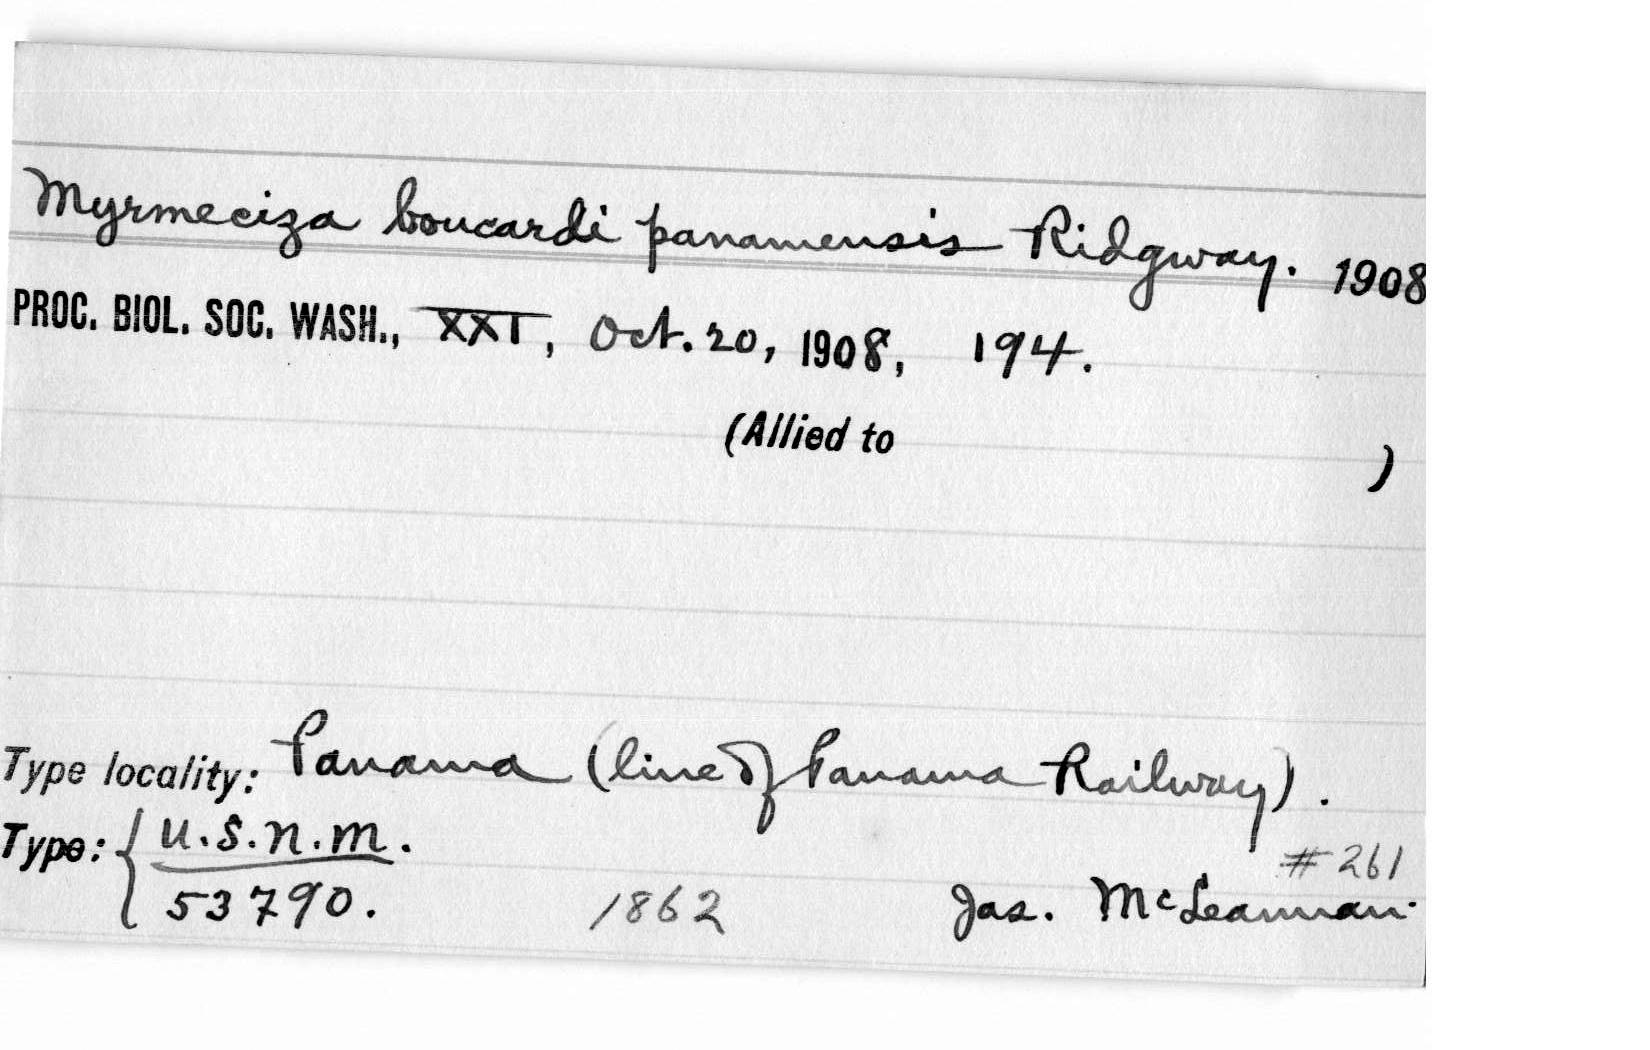 Myrmeciza boucardi panamensis Ridgway. 1908
PROC. BIOL. SOC. WASH., XXI, Oct. 20, 1908, 194.
(Allied to )
Type locality: Panama (line of Panama Railway).
Type: { U.S.N.M.
#261
53790. 1862 Jas. McLeannan.